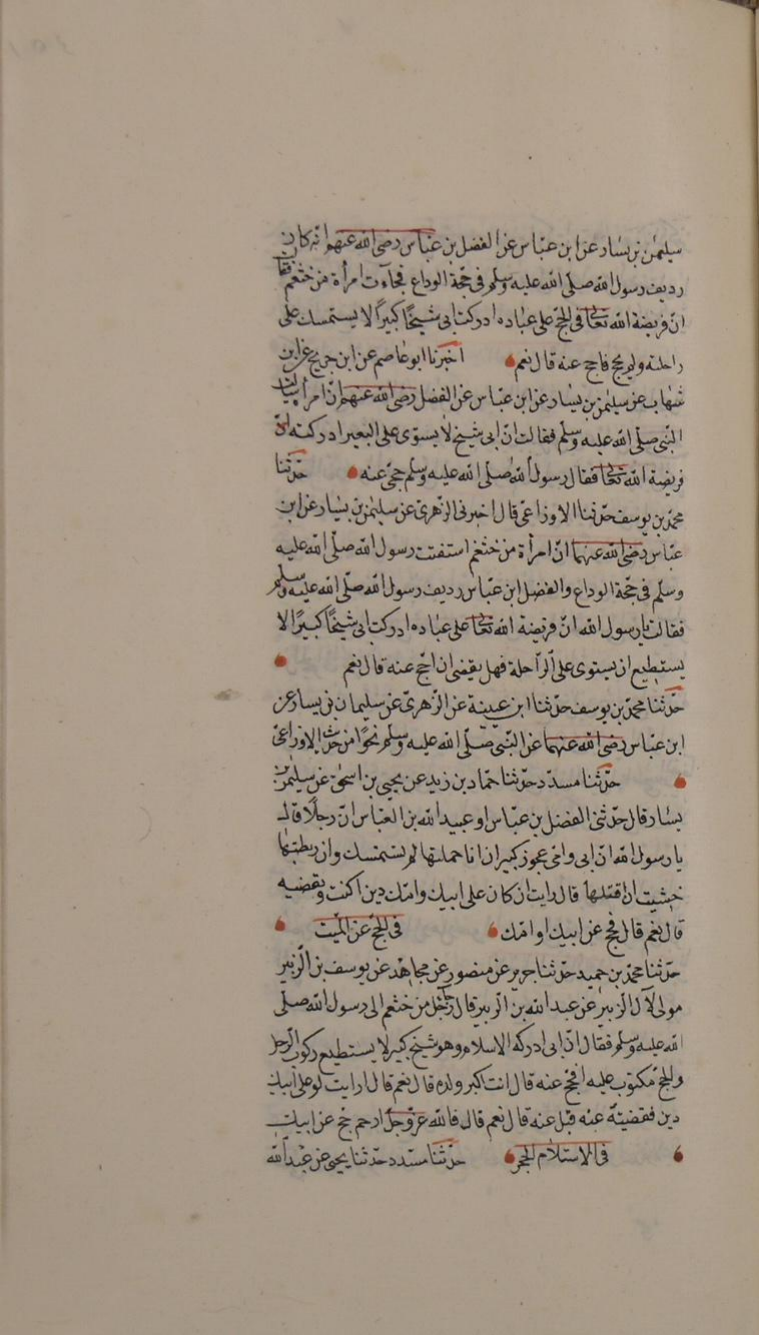 سليمن بن يسار عن ابن عباس عن الفضل بن عباس رضى الله عنهم انه كان
رديف رسول الله صلى الله عليه وسلم فى حجة الوداع فجاءت امرأة من خثعم فقا
ان فريضة الله تعالى فى الحج على عباده ادركت ابى شيخا كبيرا لا يستمسك على
راحلته ولم يحج فاحج عنه قال نعم اخبرنا ابو عاصم عن ابن جريج عن ابن
شهاب عن سليمن بن يسار عن ابن عباس عن الفضل رضى الله عنهم ان امرأ
النبى صلى الله عليه وسلم فقالت ان ابى شيخ لا يستوى على البعير ادركته
فريضة الله تعالى فقال رسول الله صلى الله عليه وسلم حجى عنه حدثنا
محمد بن يوسف حدثنا الاوزاعى قال اخبرنى الزهرى عن سليمن بن يسار عن ابن
عباس رضى الله عنهما ان امرأة من خثعم استفتت رسول الله صلى الله عليه
وسلم فى حجة الوداع والفضل ابن عباس رديف رسول الله صلى الله عليه وسلم
فقالت يا رسول الله ان فريضة الله تعالى على عباده ادركت ابى شيخا كبيرا لا
يستطيع ان يستوى على الراحلة فهل يقضى ان احج عنه قال نعم
حدثنا محمد بن يوسف حدثنا ابن عيينة عن الزهرى عن سليمان بن يسار عن
ابن عباس رضى الله عنهما عن النبى صلى الله عليه وسلم نحوا من حديث الاوزاعى
حدثنا مسدد حدثنا حماد بن زيد عن يحيى بن اسحق عن سليمن بن
يسار قال حدثنى الفضل بن عباس او عبيد الله بن العباس ان رجلا قال
يا رسول الله ان ابى وامى عجوز كبير ان انا حملتها لم تستمسك وان ربطتها
خشيت ان اقتلها قال رايت ان كان على ابيك وامك دين اكنت تقضيه
قال نعم قال فحج عن ابيك او امك فى الحج عن الميت
حدثنا محمد بن حميد حدثنا جرير عن منصور عن مجاهد عن يوسف بن الزبير
مولى لآل الزبير عن عبد الله بن الزبير قال رجل من خثعم الى رسول الله صلى
الله عليه وسلم فقال ان ابى ادركه الاسلام وهو شيخ كبير لا يستطيع ركوب الرحل
والحج مكتوب عليه افحج عنه قال انت اكبر ولده قال نعم قال ارايت لو على ابيك
دين فقضيته عنه قبل عنه قال نعم قال فالله عز وجل ارحم حج عن ابيك
فى الاستلام الحجر حدثنا مسدد حدثنا يحيى عن عبد الله